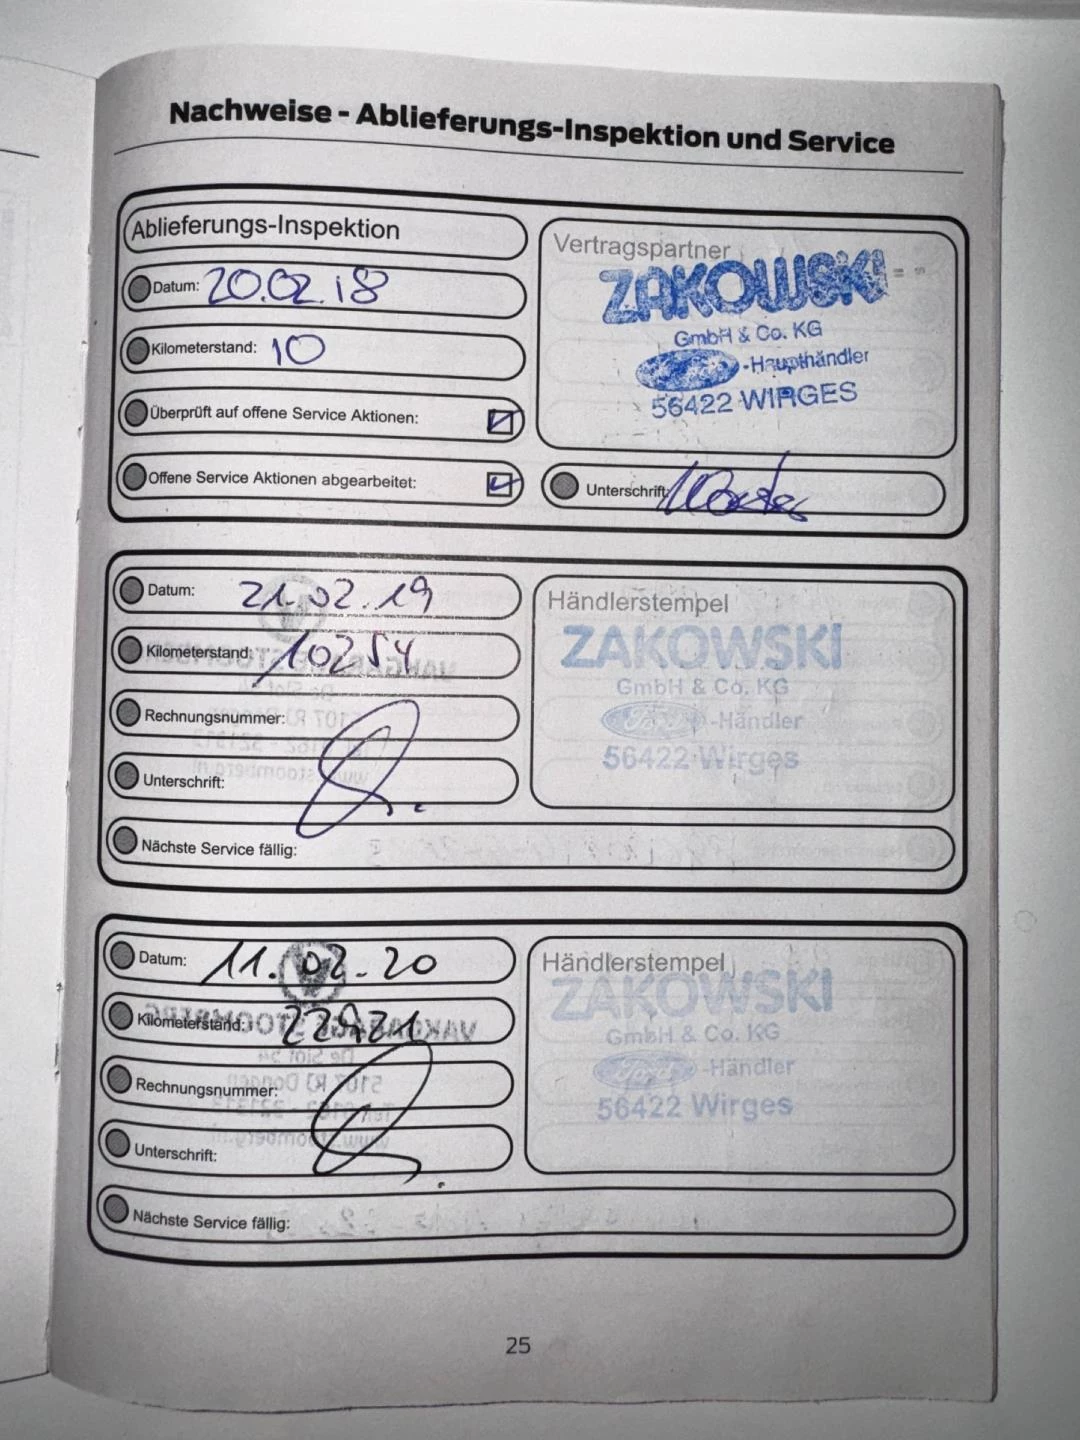 Nachweise - Ablieferungs-Inspektion und Service
Ablieferungs-Inspektion
Datum: 20.02.18
Kilometerstand: 10
Überprüft auf offene Service Aktionen:
Offene Service Aktionen abgearbeitet:
Vertragspartner
ZAKOWSKI
GmbH & Co. KG
Ford -Haupthändler
56422 WIRGES
Unterschrift:
Datum: 21.02.19
Kilometerstand: 10254
Rechnungsnummer:
Unterschrift:
Nächste Service fällig:
Händlerstempel
ZAKOWSKI
GmbH & Co. KG
Ford -Händler
56422 Wirges
Datum: 11.02.20
Kilometerstand:
Rechnungsnummer:
Unterschrift:
Nächste Service fällig:
Händlerstempel
ZAKOWSKI
GmbH & Co. KG
Ford -Händler
56422 Wirges
25